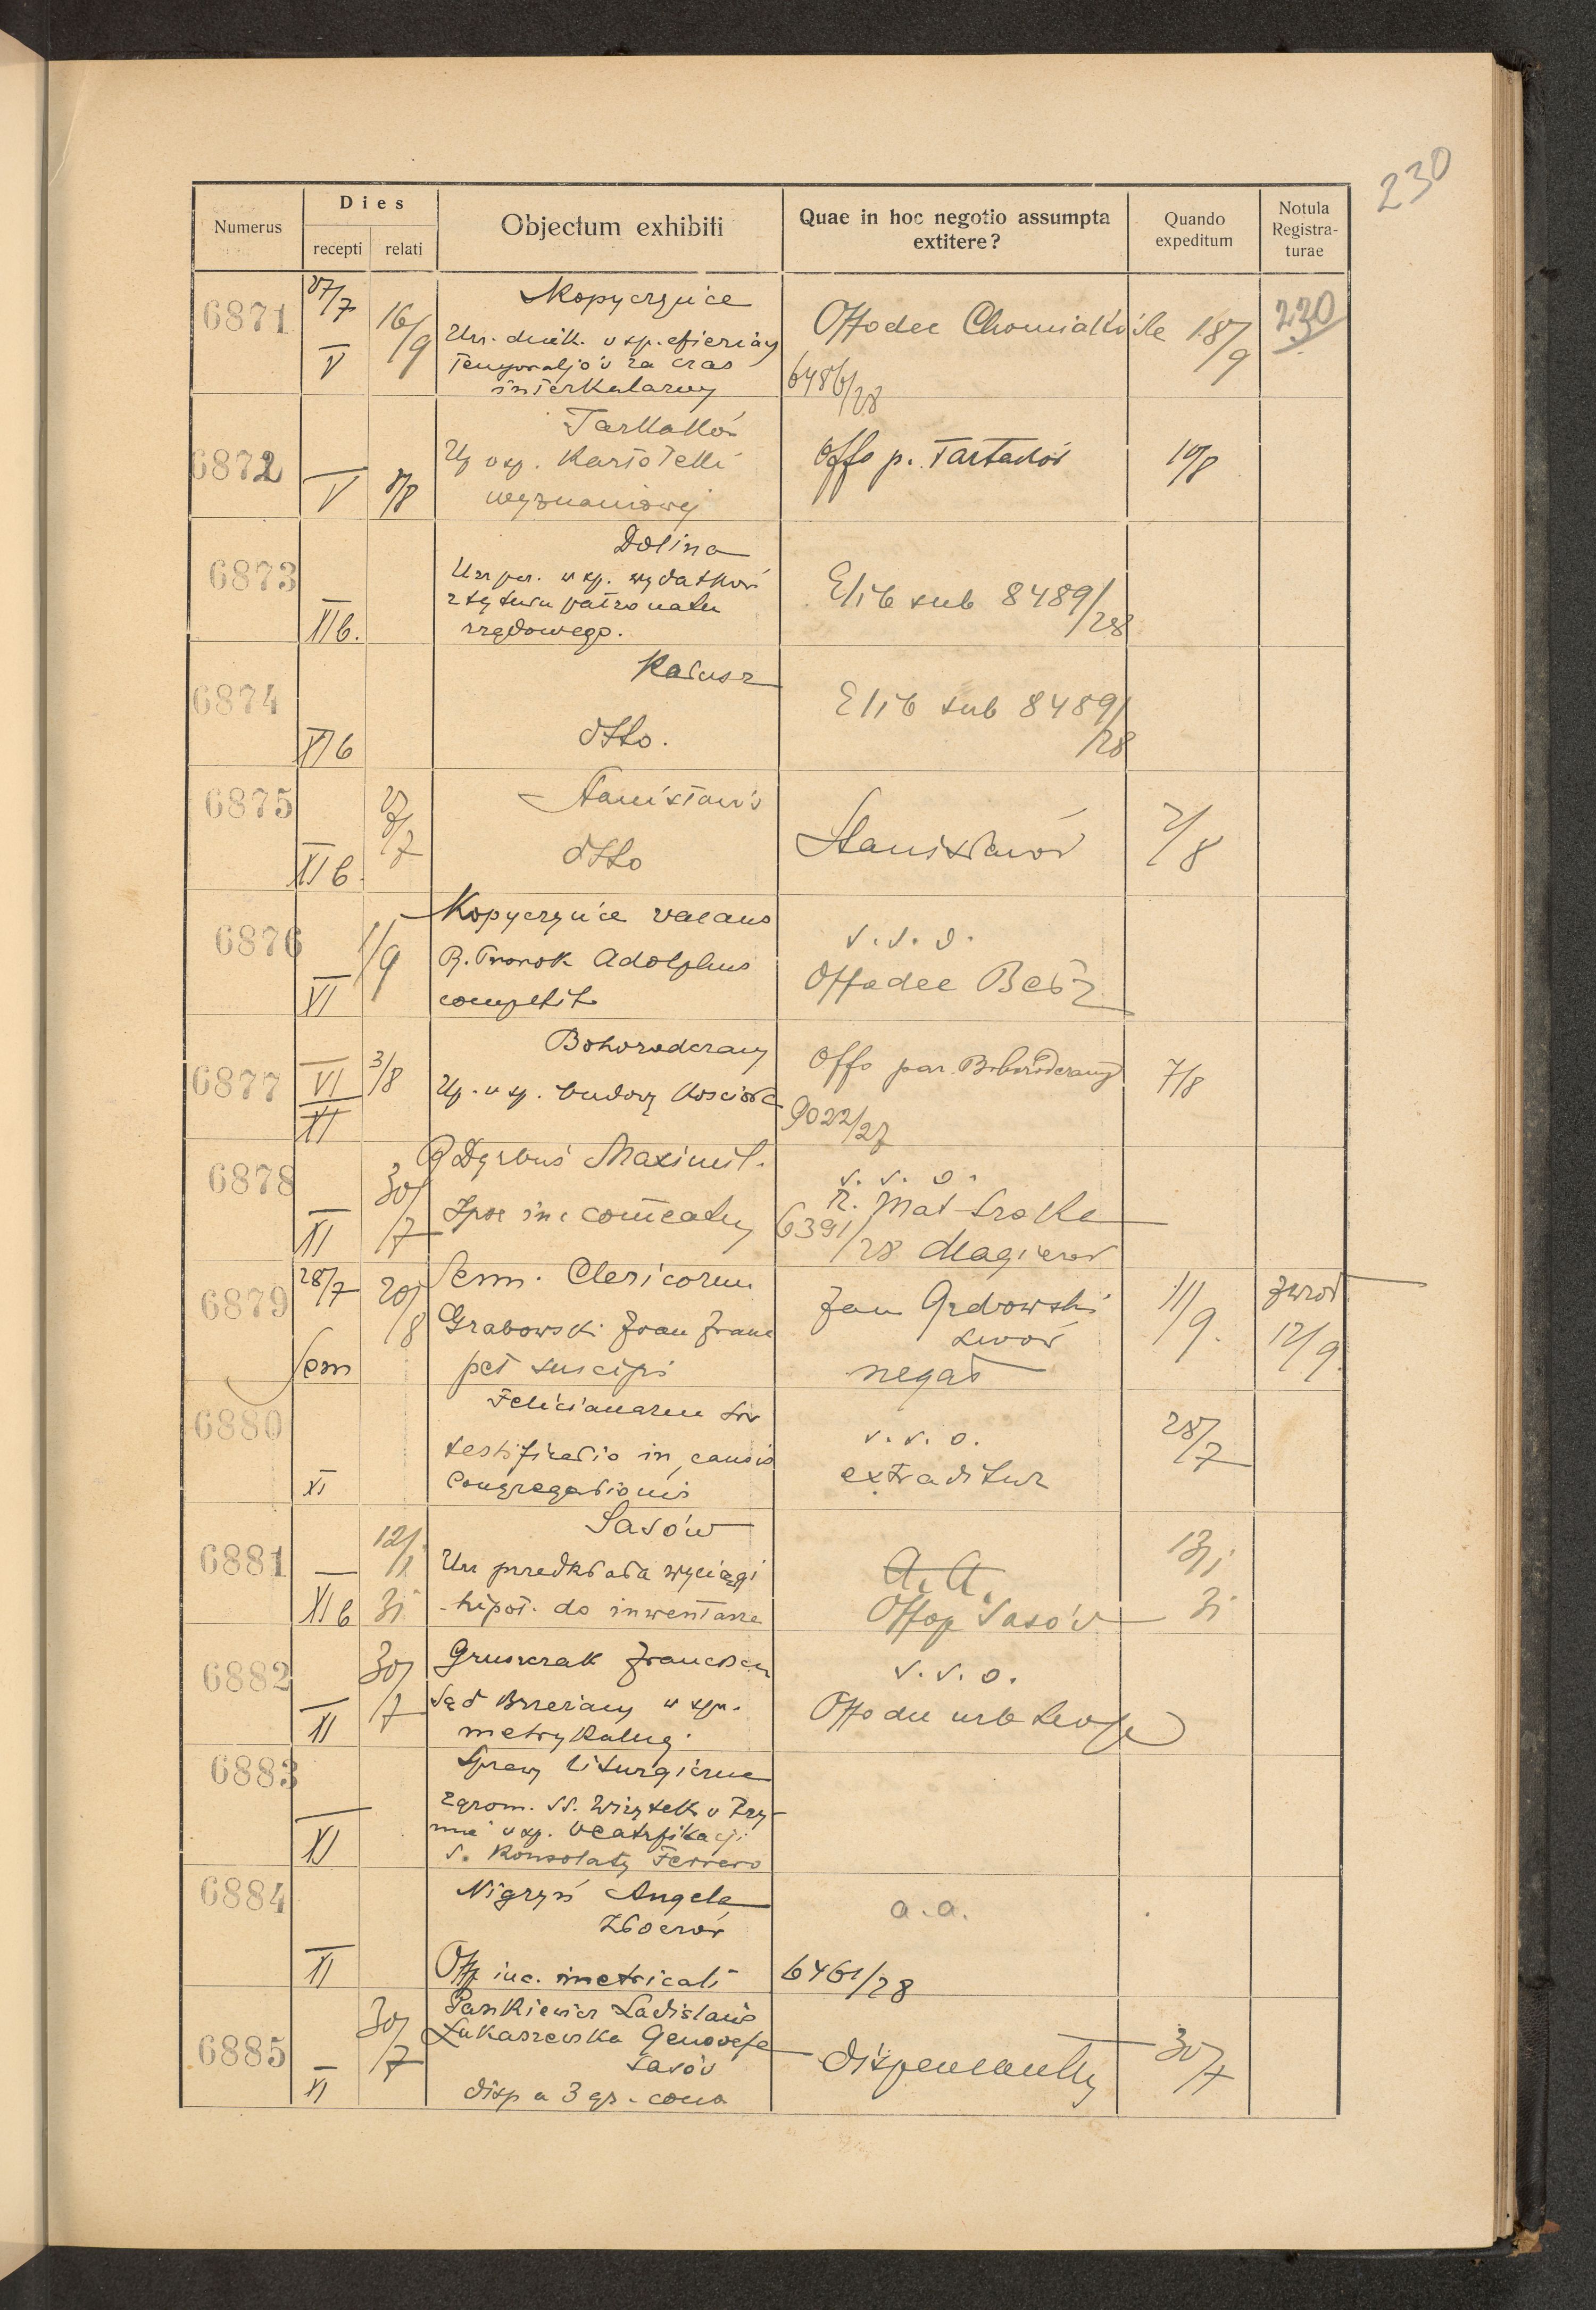 230
Numerus
Dies
recepti
relati
Objectum exhibiti
Quae in hoc negotio assumpta
extitere?
Quando
expeditum
Notula
Registra-
turae
6871
27/7
V
16/9
Kopyczyńce
Urz. dziek. w sp.
Temporaljów za czas
interkalarny
Offo dec Chomiakówka
6486/28
18/9
230
6872
V
8/8
Tartaków
w sp. Kartoteki
wyznaniowej
Offo p. Tartaków
10/8
6873
XI b.
Dolina
Urz par. w sp. wydatków
z tytułu patronatu
rządowego.
Elib sub 8489/28
6874
XI b
Kałusz
dtto.
Elib sub 8489/
/28
6875
XI b.
28/7
Stanisławów
dtto
Stanisławów
2/8
6876
VI
1/9
Kopyczyńce vacans
R. Prorok Adolphus
competit
v.s.o.
Offo dec Bełz
6877
VI
XI
3/8
Bohorodczany
Up. w sp. budowy kościoła
Offo par. Bohorodczany
9022/27
7/8
6878
XI
30/7
R Dyrbuś Maximil.
in comeatu
v. s. o.
R. Mat
6391/28 Magierów
6879
28/7
Sem
20/8
Sem. Clericorum
Grabowski Joan Franc
pet suscipi
Jan Grabowski
Lwów
negat
11/9.
zwrot
12/9.
6880
XI
Felicianarum
testificatio in causis
Congregationis
v. s. o.
extraditur
28/7
6881
XI b
12/1
31
Sasów
Urz przedkłada wyciągi
hipot. do inwentarza
A. A.
Offo p Sasów
13/1
31
6882
XI
30/7
Gruszczak Franciszek
Sąd Brzeżany w spr.
metrykalnej
v. s. o.
Offo dec urb Leop
6883
XI
Sprawy liturgiczne
Zgrom. SS. Wizytek w Rzy-
mie w sp. beatyfikacji
S. Konsolaty Ferrero
6884
XI
Nigryń Angela
Zboczów
Offp inc. metricali
a.a.
6461/28
6885
XI
30/7
Pankiewicz Ladislaus
Łukaszewska Genovefa
Sasów
disp a 3 gr. cons
dispensantur
30/7